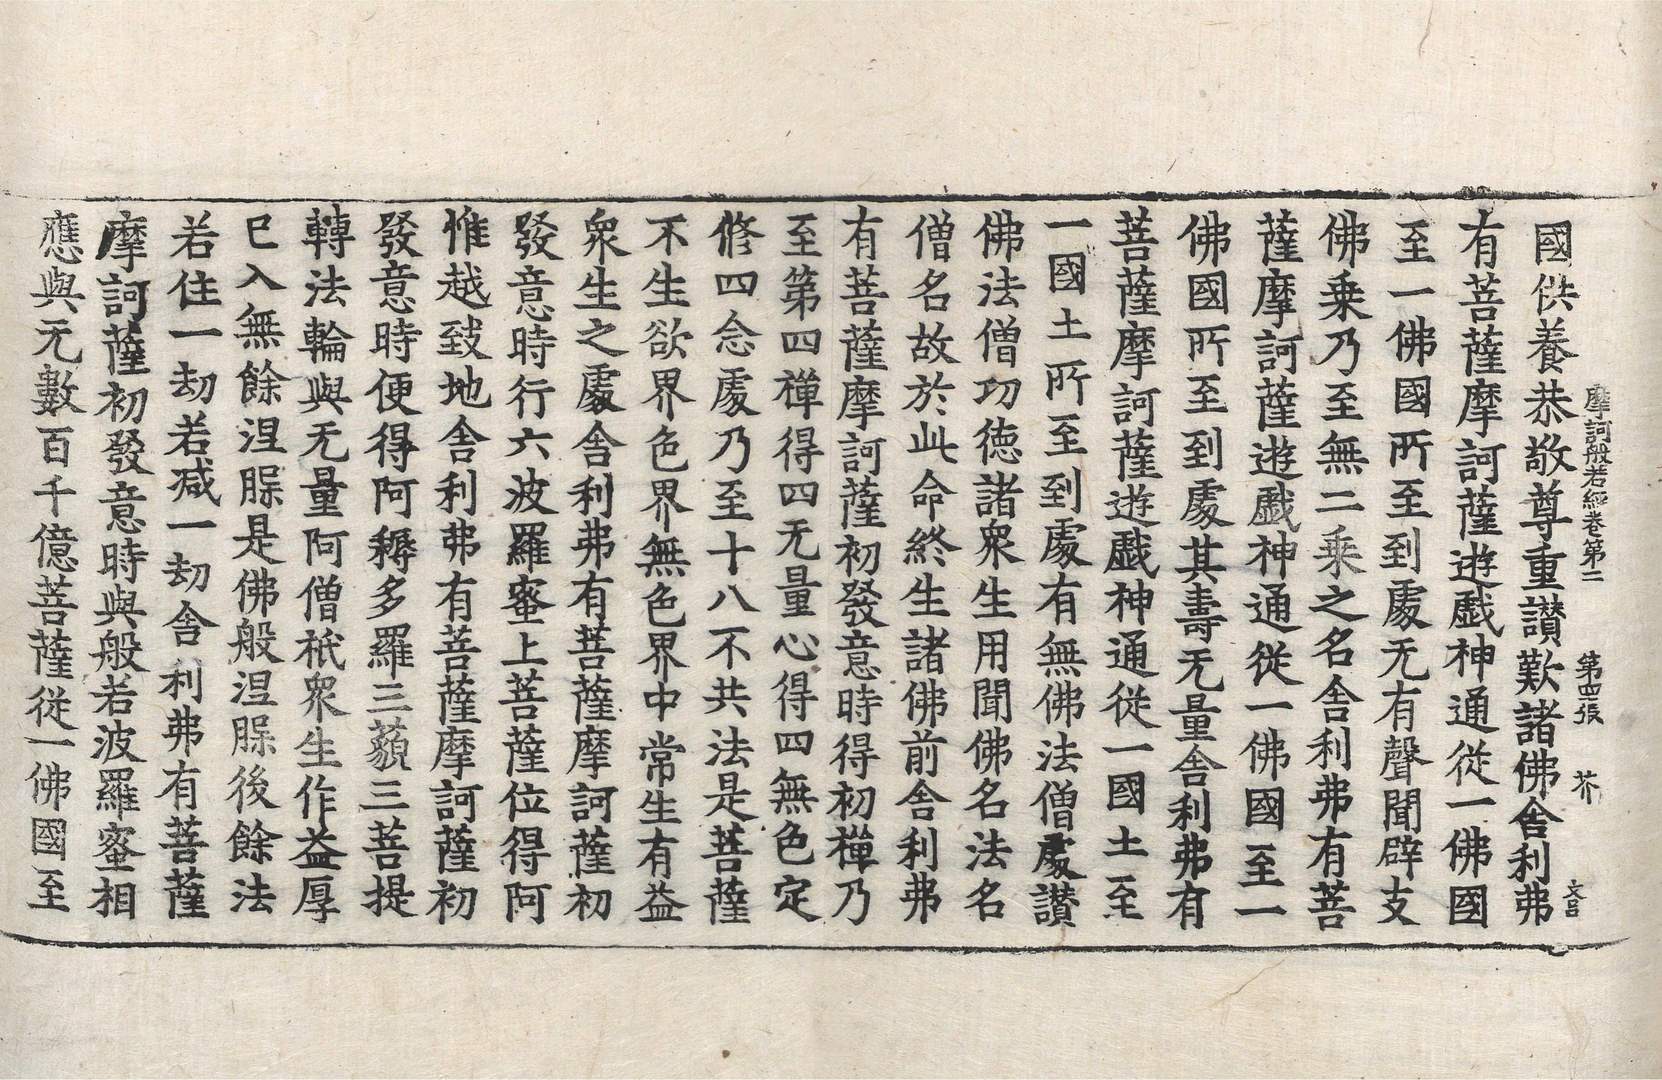 摩訶般若經卷第二 第四張 芥 文呂
國供養恭敬尊重讃歎諸佛舍利弗
有菩薩摩訶薩遊戲神通從一佛國
至一佛國所至到處无有聲聞辟支
佛乗乃至無二乗之名舍利弗有菩
薩摩訶薩遊戲神通從一佛國至一
佛國所至到處其壽无量舍利弗有
菩薩摩訶薩遊戲神通從一國土至
一國土所至到處有無佛法僧處讃
佛法僧功徳諸衆生用聞佛名法名
僧名故於此命終生諸佛前舍利弗
有菩薩摩訶薩初發意時得初禪乃
至第四禪得四无量心得四無色定
修四念處乃至十八不共法是菩薩
不生欲界色界無色界中常生有益
衆生之處舍利弗有菩薩摩訶薩初
發意時行六波羅蜜上菩薩位得阿
惟越致地舍利弗有菩薩摩訶薩初
發意時便得阿耨多羅三藐三菩提
轉法輪與无量阿僧祇衆生作益厚
已入無餘涅槃是佛般涅槃後餘法
若住一劫若减一劫舍利弗有菩薩
摩訶薩初發意時與般若波羅蜜相
應與无數百千億菩薩從一佛國至